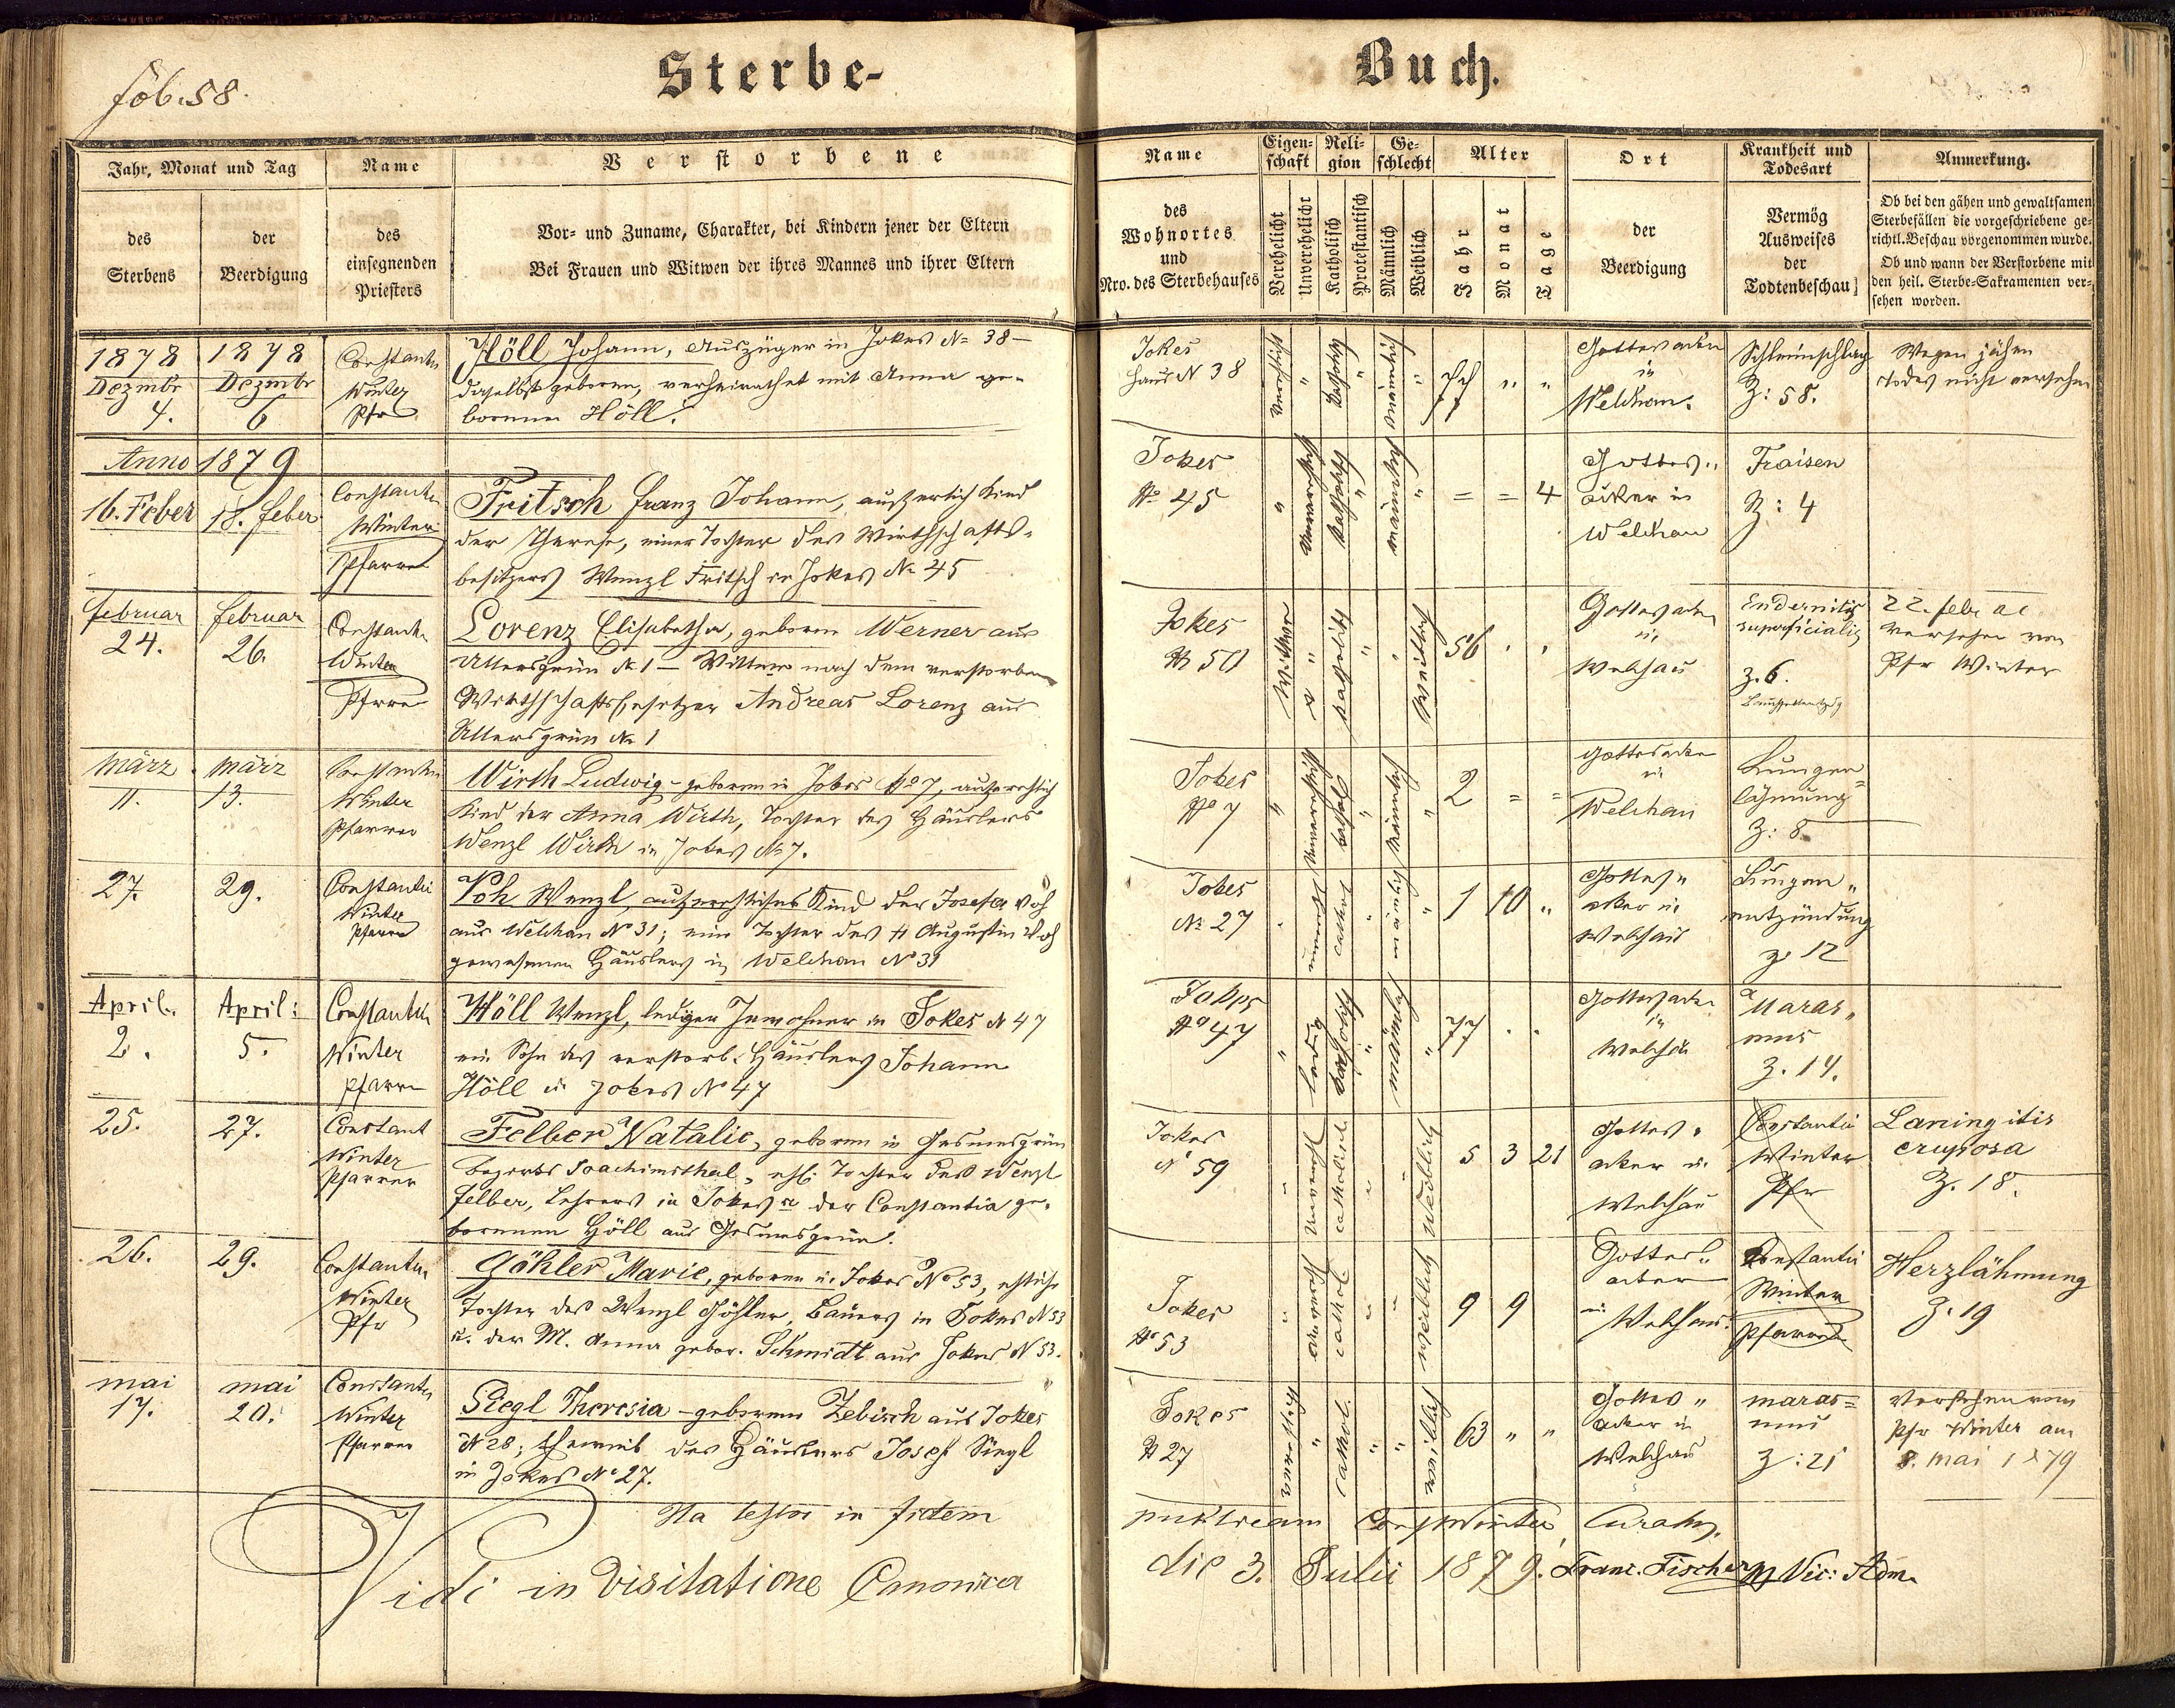 fol. 58.
Sterbe-
Buch.
Jahr, Monat und Tag
des
Sterbens
der
Beerdigung
Name
des
einsegnenden
Priesters
Verstorbene
Vor- und Zuname, Charakter, bei Kindern jener der Eltern
Bei Frauen und Witwen der ihres Mannes und ihrer Eltern
Name
des
Wohnortes
und
Nro. des Sterbehauses
Eigen-
schaft
Verehelicht
Unverehelicht
Reli-
gion
Katholisch
Protestantisch
Ge-
schlecht
Männlich
Weiblich
Alter
Jahr
Monat
Tage
Ort
der
Beerdigung
Krankheit und
Todesart
Vermög
Ausweises
der
Todtenbeschau
Anmerkung.
Ob bei den gähen und gewaltsamen
Sterbefällen die vorgeschriebene ge-
richtl. Beschau vorgenommen wurde.
Ob und wann der Verstorbene mit
den heil. Sterbe-Sakramenten ver-
sehen worden.
1878
Dezmbr
4.
1878
Dezmbr
6
Constantin
Winter
Pfr
Höll Johann, Auszüger in Jokes No 38 –
daselbst geboren, verheirathet mit Anna ge-
bornen Höll.
Jokes
Haus N 38
verehlicht
"
katholisch
"
männlich
"
77
"
"
Gottesacker
in
Welchau.
Schleimschlag
Z: 58.
Wegen jähen
Todes nicht versehen
Anno 1879
16. Feber
18. Feber
Constantin
Winter
Pfarrer
Fritsch Franz Johann, außerehlich Kind
der Therese, einer Tochter des Wirthschafts-
besitzers Wenzl Fritsch in Jokes No 45
Jokes
No 45
"
unverehlicht
katholisch
"
männlich
"
=
=
4
Gottes-
acker in
Welchau
Fraisen
Z: 4
Februar
24.
Februar
26.
Constantin
Winter
Pfarrer
Lorenz Elisabetha, geborne Werner aus
Ullersgrün No 1 – Wittwe nach dem verstorbenen
Wirthschaftsbesitzer Andreas Lorenz aus
Ullersgrün No 1
Jokes
N 50
Wittwe
"
katholisch
"
"
weiblich
56
"
"
Gottesacker
in
Welchau
superficialis
Z. 6.
22. Feber
versehen von
Pfr Winter
März
11.
März
13.
Constantin
Winter
Pfarrer
Wirth Ludwig – geboren in Jokes No 7, außerehlich
Kind der Anna Wirth, Tochter des Häuslers
Wenzl Wirth in Jokes No 7.
Jokes
No 7
"
unverehlicht
kathol
"
männlich
"
2
=
=
Gottesacker
in
Welchau
Lungen
lähmung
Z: 8
27.
29.
Constantin
Winter
Pfarrer
Poh Wenzl, außerehliches Kind der Josefa Poh
aus Welchau No 31; eine Tochter des † Augustin Poh
gewesenen Häuslers in Welchau No 31
Jokes
No 27
"
unverehl
cathol
"
männlich
"
1
10
"
Gottes-
acker in
Welchau
Lungen
entzündung
Z. 12
April.
2.
April:
5.
Constantin
Winter
Pfarrer
Höll Wenzl, lediger Inwohner in Jokes N 47
ein Sohn des verstorb. Häuslers Johann
Höll in Jokes No 47
Jokes
No 47
"
ledig
katholisch
"
männlich
"
77
"
"
Gottesacker
in
Welchau
Maras-
mus
Z. 14.
25.
27.
Constant
Winter
Pfarrer
Felber Natalie, geboren in Gesmesgrün
Bezirks Joachimsthal, ehl. Tochter des Wenzl
Felber, Lehrers in Jokes u der Constantia ge-
bornenen Höll aus Gesmesgrün.
Jokes
No 59
"
unverehl
catholisch
"
"
weiblich
5
3
21
Gottes-
acker in
Welchau
Constantin
Winter
Pfr
Laringitis
cruposa
Z. 18.
26.
29.
Constantin
Winter
Pfr
Göhler Marie, geboren in Jokes No 53, ehliche
Tochter des Wenzl Göhler, Bauers in Jokes N 53
u. der M. Anna gebor. Schmidt aus Jokes N 53.
Jokes
No 53
"
unverehl
cathol
"
"
weiblich
9
9
Gottes-
acker
in Welchau.
Constantin
Winter
Pfarrer
Herzlähmung
Z. 19
Mai
17.
Mai
20.
Constantin
Winter
Pfarrer
Siegl Theresia – geborene Zebisch aus Jokes
N 28; Eheweib des Häuslers Josef Siegl
in Jokes No 27.
Jokes
N 27
verehlicht
"
cathol.
"
"
weiblich
63
"
"
Gottes-
acker in
Welchau
maras=
mus
Z: 21
Versehen vom
Pfr Winter am
8. Mai 1879
Ita testor in fidem
Const Winter, Curatus.
Vidi in Visitatione Canonica
die 3. Julii 1879. Franc. Fischer Vic: Adm.